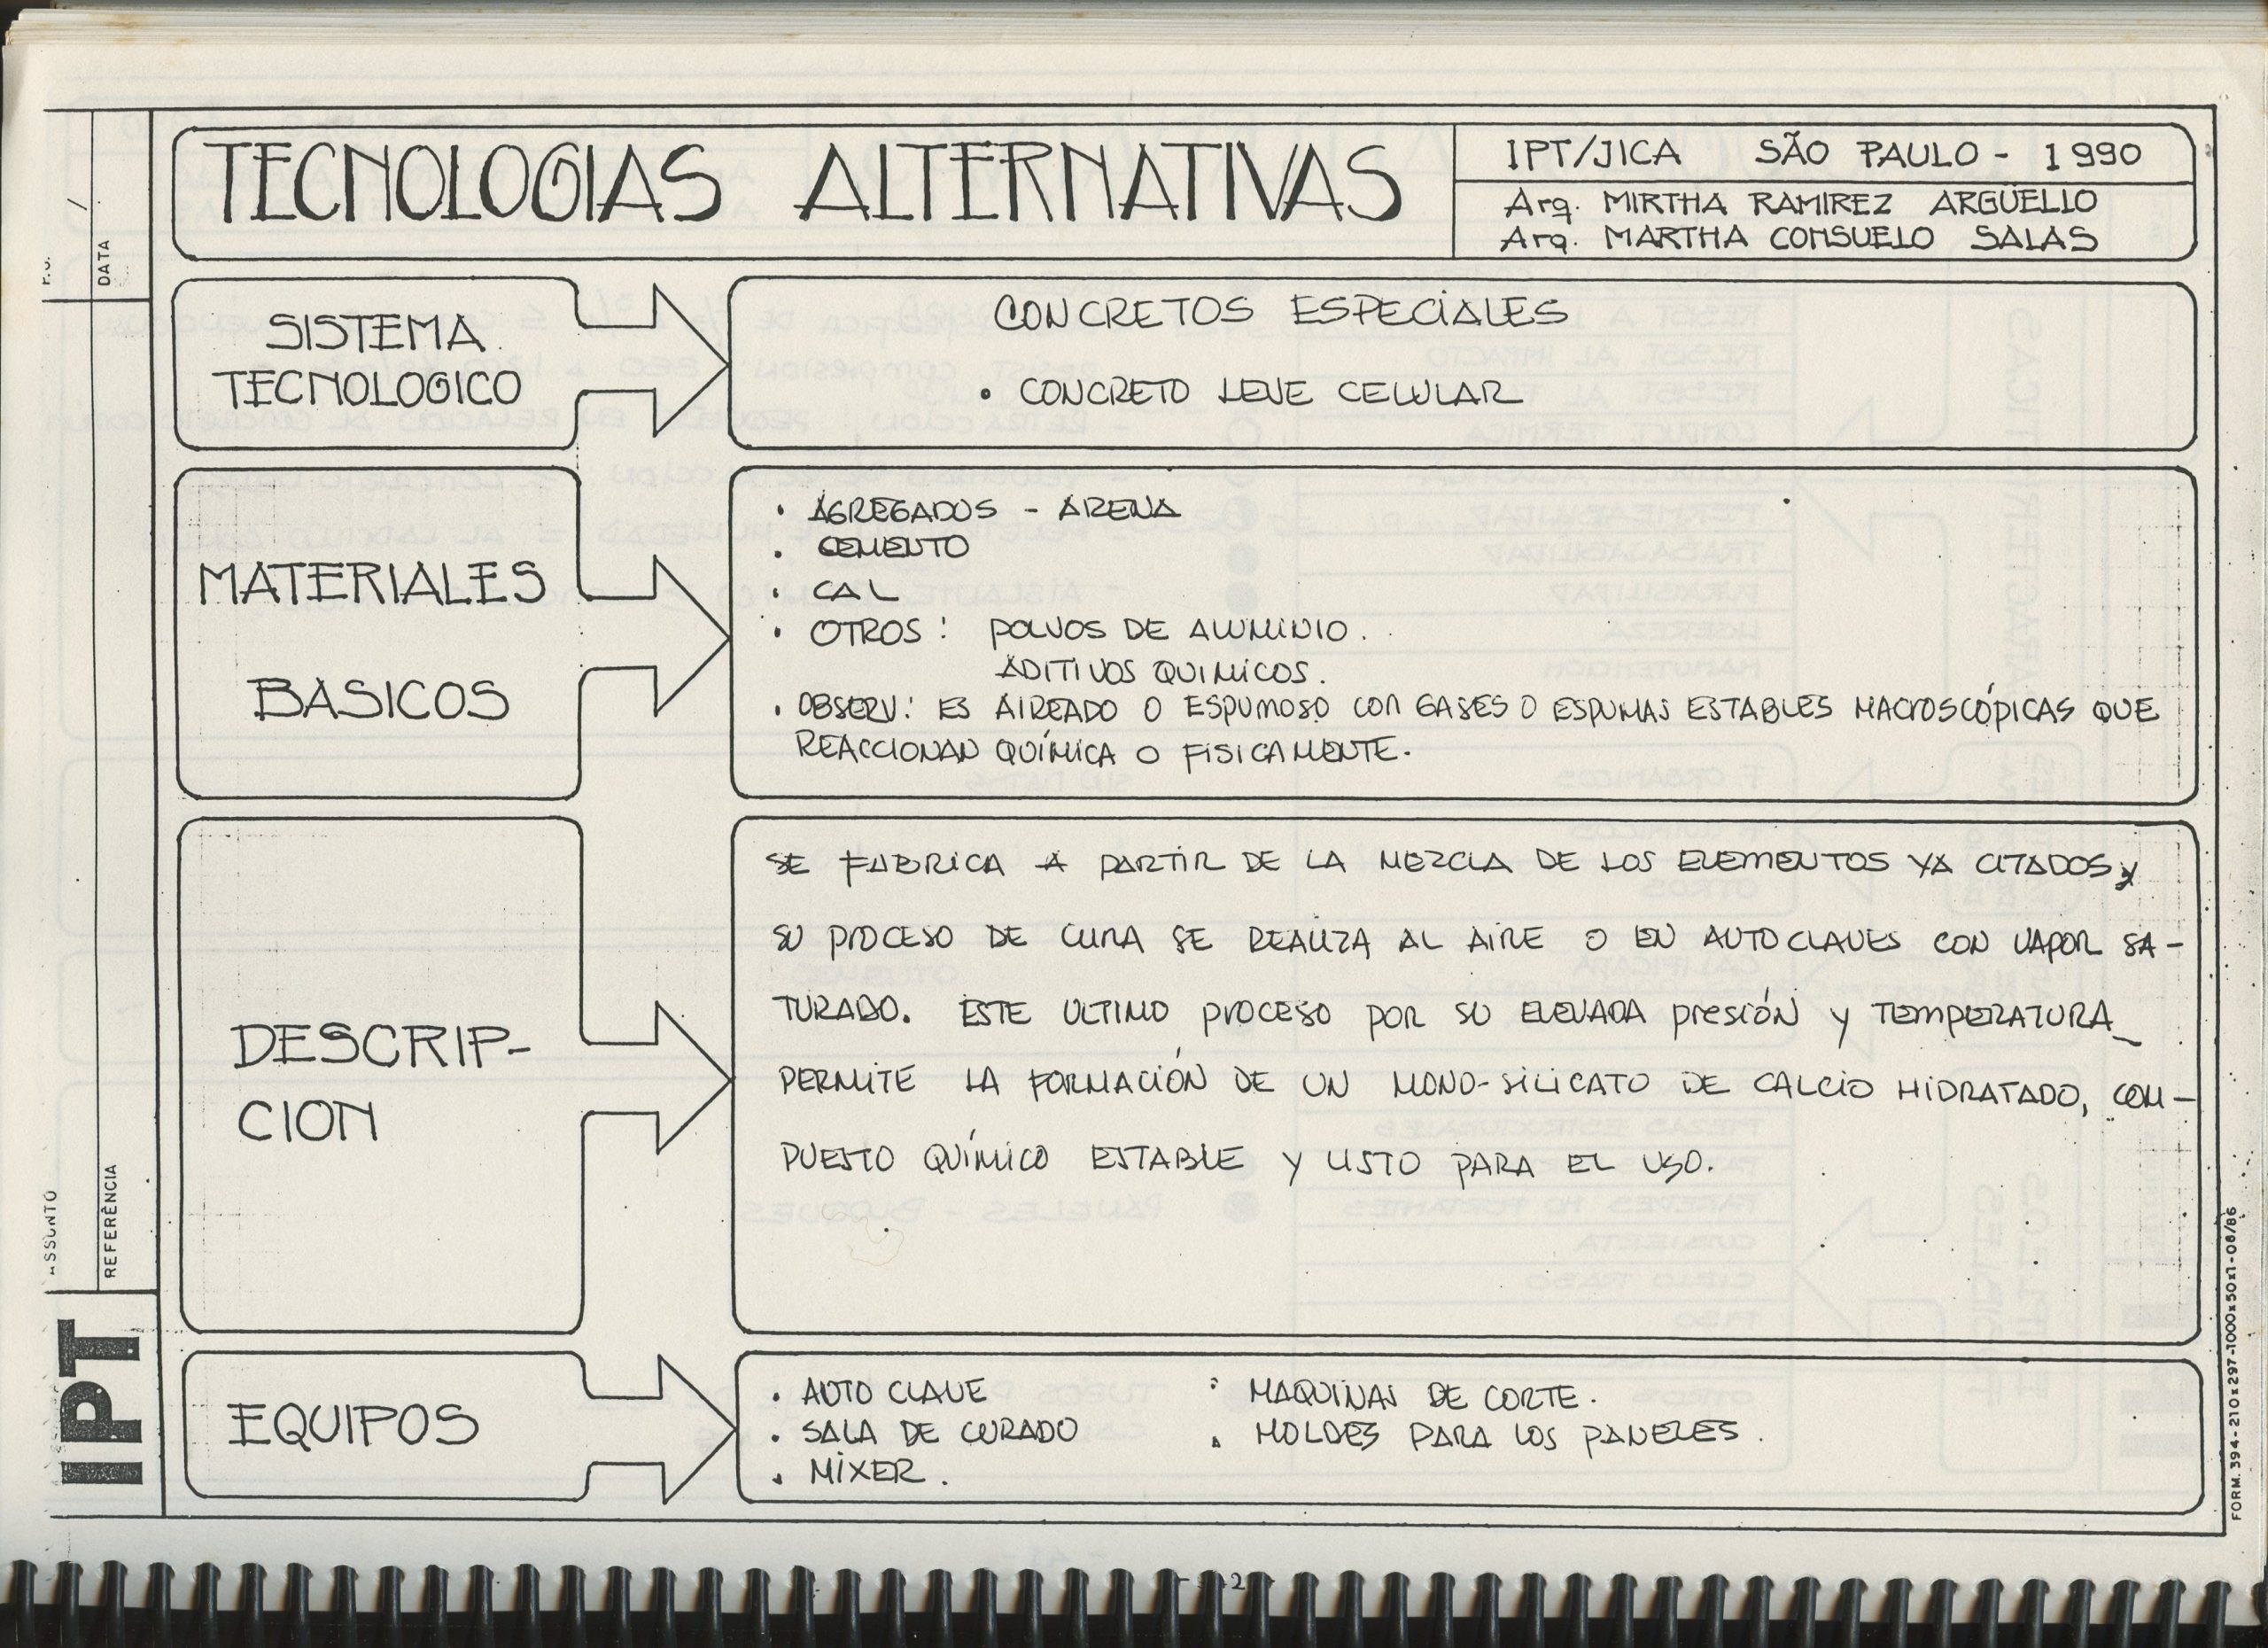 TECNOLOGIAS ALTERNATIVAS
IPT/JICA SÃO PAULO - 1990
Arq. MIRTHA RAMIREZ ARGÜELLO
Arq. MARTHA CONSUELO SALAS
SISTEMA
TECNOLOGICO
CONCRETOS ESPECIALES
• CONCRETO LEVE CELULAR
MATERIALES
BASICOS
• AGREGADOS - ARENA
• CEMENTO
• CAL
• OTROS: POLVOS DE ALUMINIO.
ADITIVOS QUIMICOS.
• OBSERV: ES AIREADO O ESPUMOSO CON GASES O ESPUMAS ESTABLES MACROSCÓPICAS QUE
REACCIONAN QUÍMICA O FISICAMENTE.
DESCRIP-
CION
SE FABRICA A PARTIR DE LA MEZCLA DE LOS ELEMENTOS YA CITADOS y
SU PROCESO DE CURA SE REALIZA AL AIRE O EN AUTOCLAVES CON VAPOR SA-
TURADO. ESTE ULTIMO PROCESO POR SU ELEVADA PRESIÓN Y TEMPERATURA_
PERMITE LA FORMACIÓN DE UN MONO-SILICATO DE CALCIO HIDRATADO, COM-
PUESTO QUÍMICO ESTABLE Y LISTO PARA EL USO.
EQUIPOS
• AUTO CLAVE
• SALA DE CURADO
• MIXER.
• MAQUINAS DE CORTE.
• MOLDES PARA LOS PANELES.
DATA
ASSUNTO
REFERÊNCIA
IPT
FORM. 394-210x297-1000x50x1-08/86